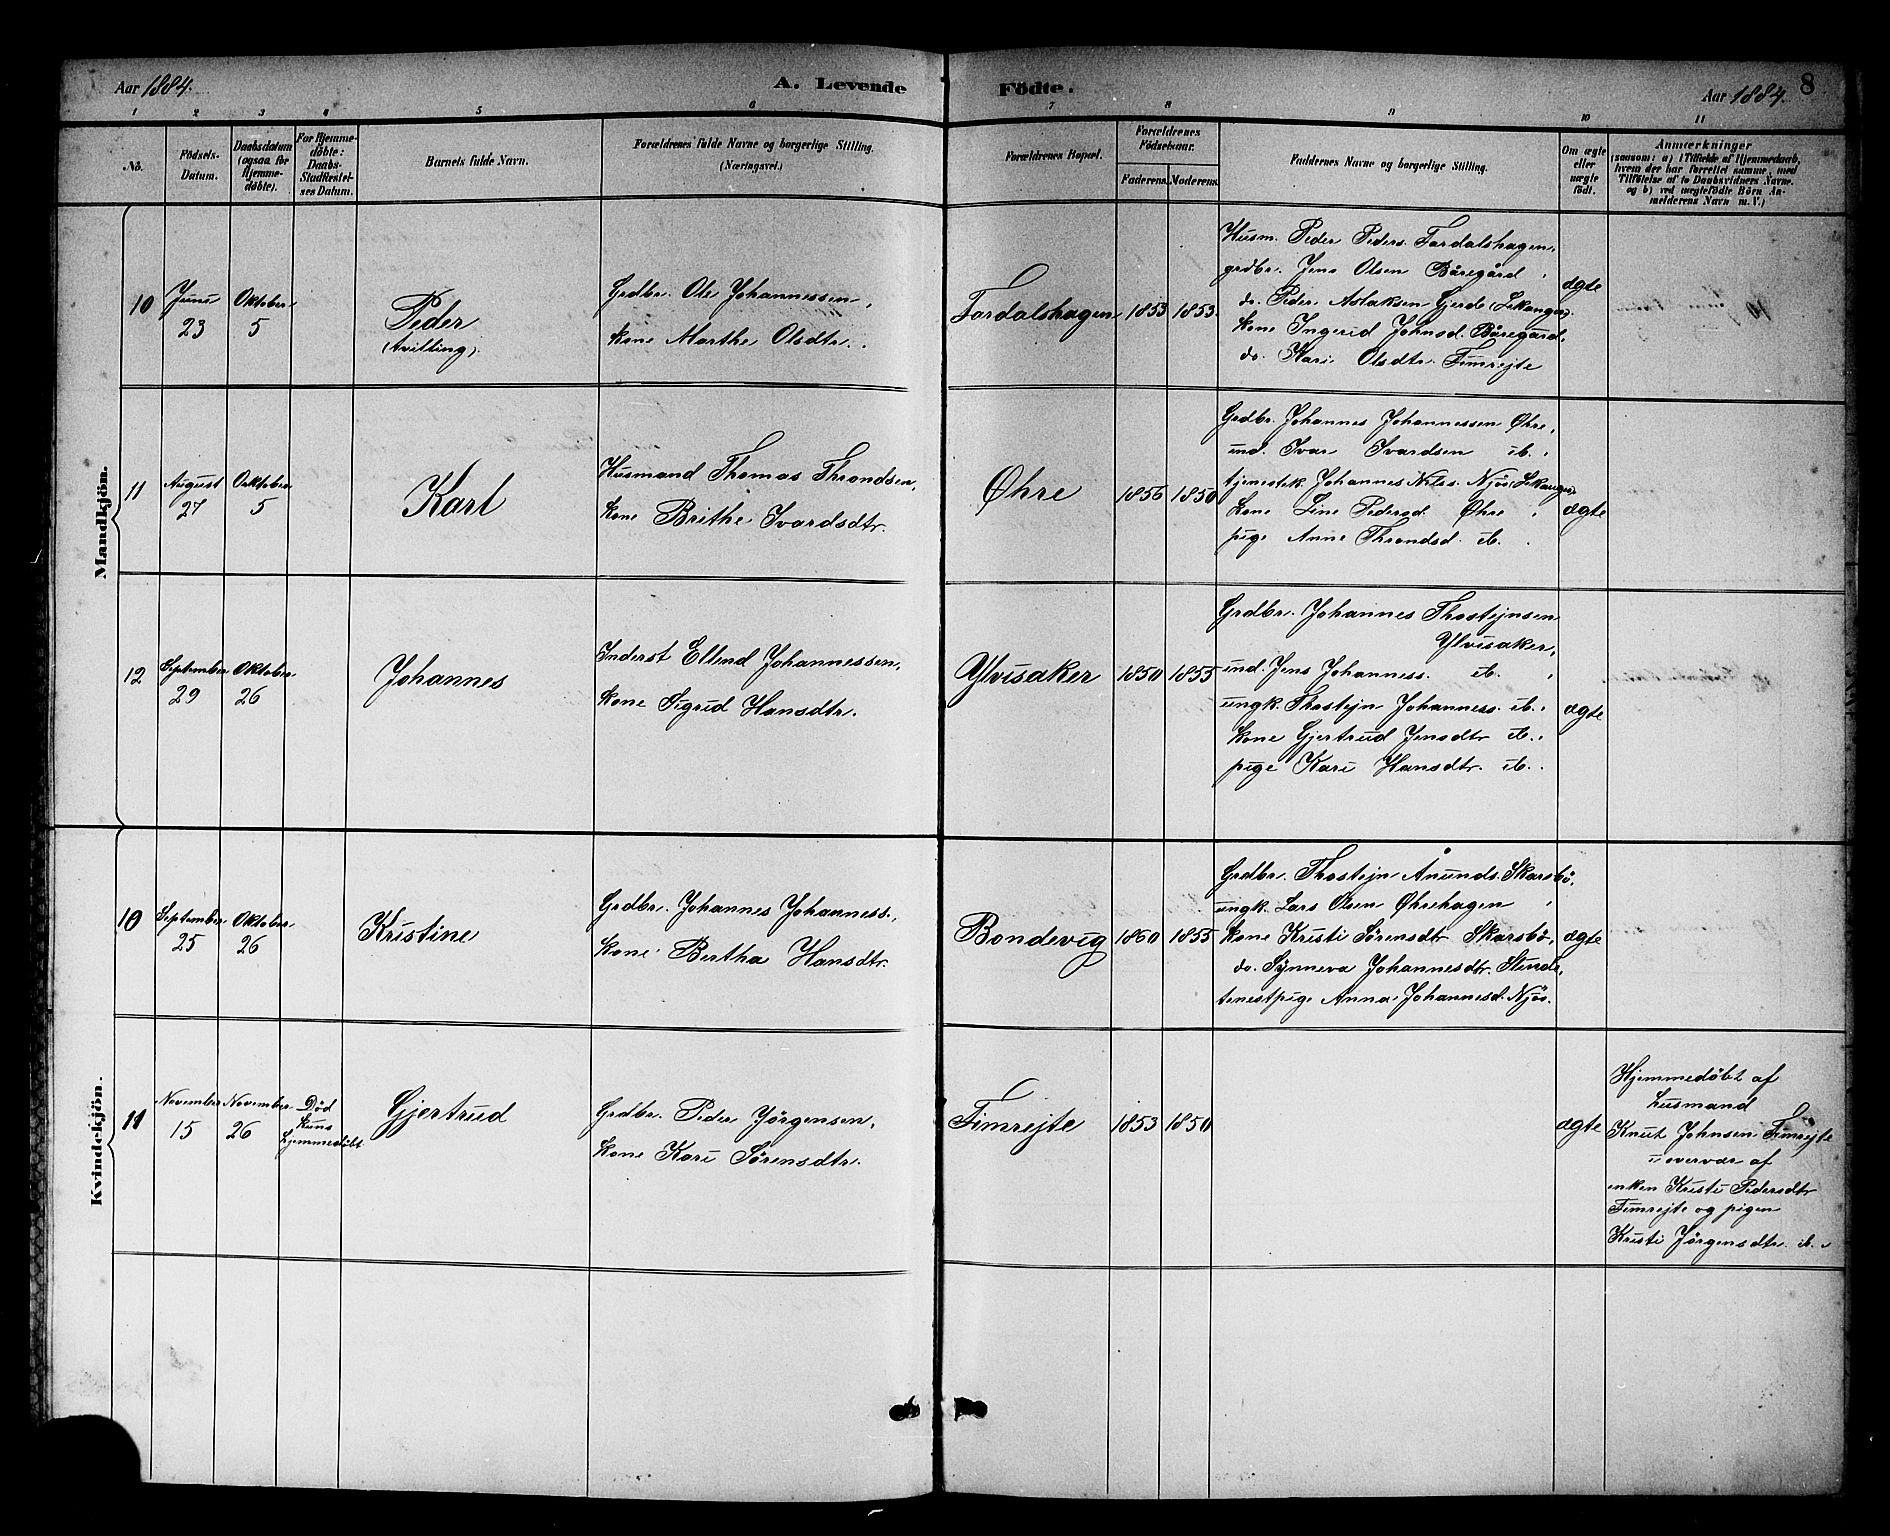 Aar 1884.
A. Levende Fødte.
Aar 1884. 8
1 2 3 4 5 6 7 8 9 10 11
No.
Fødsels-
Datum.
Daabsdatum
(ogsaa for
Hjemme-
døbte).
For Hjemme-
døbte:
Daabs-
Stadfæstel-
ses Datum.
Barnets fulde Navn.
Forældrenes fulde Navne og borgerlige Stilling.
(Næringsvei.)
Forældrenes Bopæl.
Forældrenes
Fødselsaar.
Faderens. Moderens.
Faddernes Navne og borgerlige Stilling.
Om ægte
eller
uægte
født.
Anmærkninger
(saasom: a) i Tilfælde af Hjemmedaab,
hvem der har forrettet samme, med
Tilføielse af to Daabsvidners Navne.
og b) ved uægtefødte Børn An-
melderens Navn m. V.)
Mandkjön.
10
Juni
23
Oktober
5
Peder
(tvilling).
Grdbr. Ole Johannessen,
kone Marthe Olsdtr.
Fardalshagen
1853 1853
Husm. Peder Peders. Fardalshagen,
grdbr. Jens Olsen Båregård,
do. Peder Aslaksen Gjerde (Leikanger).
kone Ingerid Johnsd. Båregård,
do. Kari Olsdtr. Fimrejte
ægte
11
August
27
Oktober
5
Karl
Husmand Thomas Throndsen,
kone Brithe Ivarsdtr.
Øhre
1856 1850
Grdbr. Johannes Johannessen Øhre,
ind. Ivar Ivarsen ib.,
tjenestek. Johannes Nilss. Njøs (Leikanger)
kone Line Pedersd. Øhre,
pige Anne Throndsd. ib.
ægte
12
September
29
Oktober
26
Johannes
Inderst Ellend Johannessen,
kone Sigrid Hansdtr.
Ylvisaker
1850 1855
Grdbr. Johannes Thostejnsen
Ylvisaker,
ind. Jens Johanness. ib.,
ungk. Thostejn Johanness. ib.,
kone Gjertrud Jensdtr ib.,
pige Kari Hansdtr. ib..
ægte
Kvindekjön.
10
September
25
Oktober
26
Kristine
Grdbr. Johannes Johanness.,
kone Bertha Hansdtr.
Bondevig
1860 1855
Grdbr. Thostejn Ånunds. Skarsbø,
ungk. Lars Olsen Øhrehagen,
kone Kristi Sørensdtr Skarsbø,
do. Synneva Johannesdtr. Stende,
tenestpige Anna Johannesd. Njøs.
ægte
11
November
15
November
26
Død
kuns
hjemmedøbt
Gjertrud
Grdbr. Peder Jørgensen,
kone Kari Sørensdtr.
Fimrejte
1853 1850
ægte
Hjemmedøbt af
husmand
Knut Johnsen Fimrejte
i overvær af
enken Kristi Pedersdtr
Fimrejte og pigen
Kristi Jørgensdtr. ib..